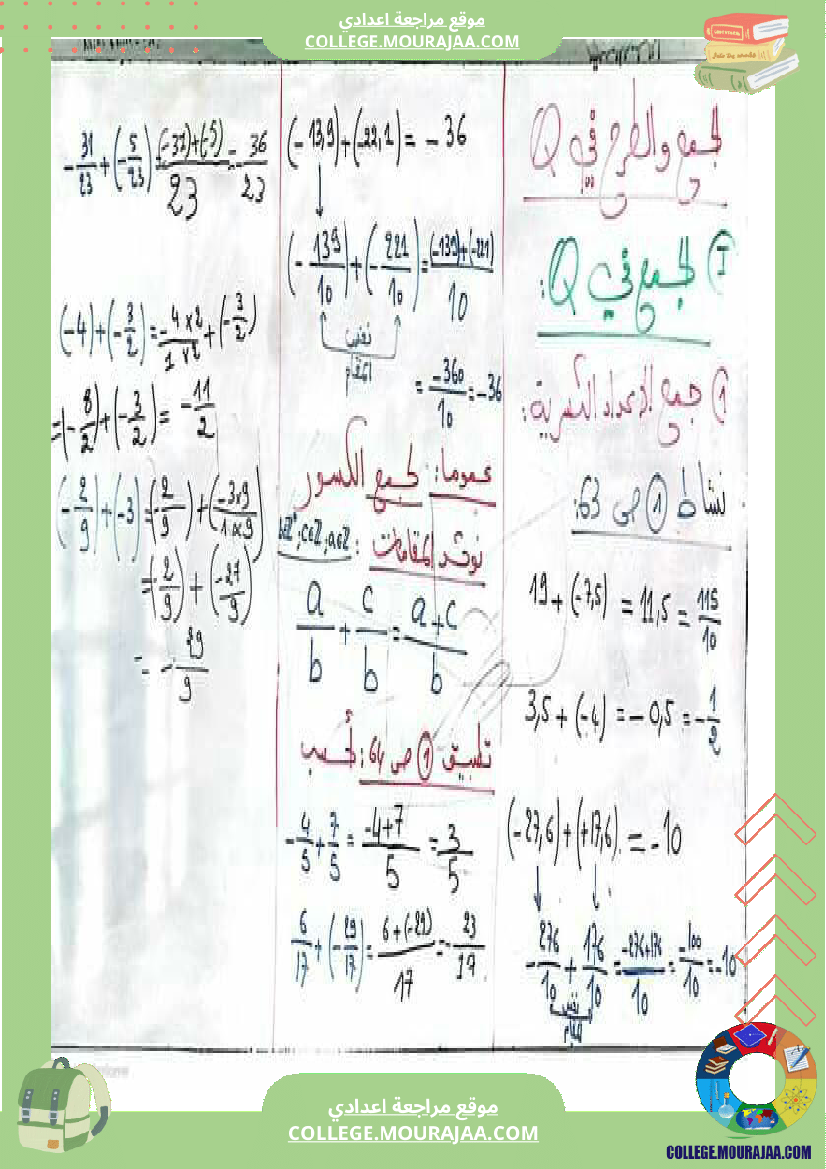 موقع مراجعة اعدادي
COLLEGE.MOURAJAA.COM
الجمع والطرح في Q
I) الجمع في Q:
1) جمع الأعداد الكسرية:
نشاط 1 ص 63:
19 + (-7,5) = 11,5 = 115/10
3,5 + (-4) = -0,5 = -1/2
(-27,6) + (+17,6) = -10
-276/10 + 176/10 = -276+176/10 = -100/10 = -10
نفس
المقام
(-13,9) + (-22,1) = -36
(-139/10) + (-221/10) = (-139)+(-221)/10
نفس
المقام
= -360/10 = -36
عموما: لجمع الكسور
نوحد المقامات: b∈Z*, c∈Z, a∈Z
a/b + c/b = a+c/b
تطبيق 1 ص 64: أحسب
-4/5 + 7/5 = -4+7/5 = 3/5
6/17 + (-29/17) = 6+(-29)/17 = -23/17
-31/23 + (-5/23) = (-31)+(-5)/23 = -36/23
(-4) + (-3/2) = -4×2/1×2 + (-3/2)
= (-8/2) + (-3/2) = -11/2
(-2/9) + (-3) = (-2/9) + (-3×9/1×9)
= (-2/9) + (-27/9)
= -29/9
موقع مراجعة اعدادي
COLLEGE.MOURAJAA.COM
COLLEGE.MOURAJAA.COM